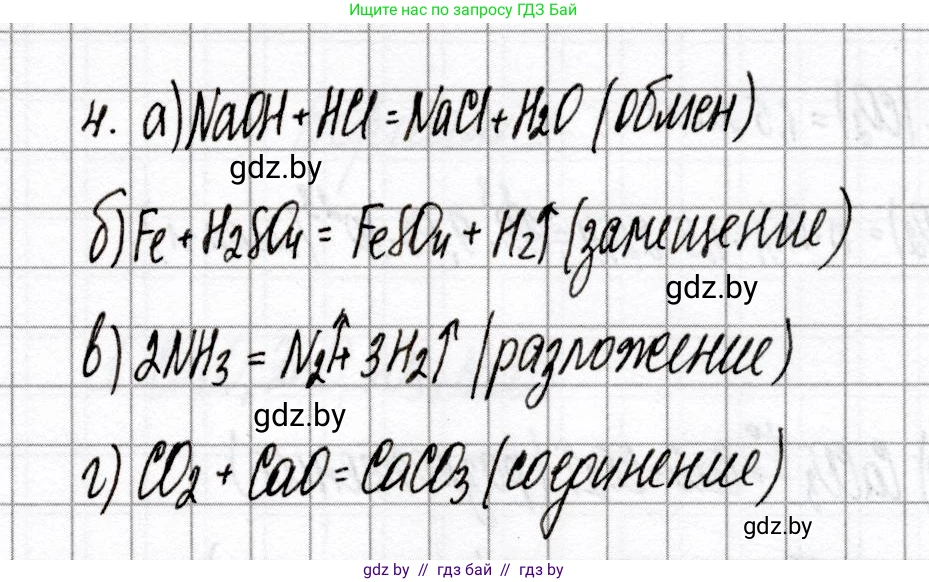 Ищите нас по запросу ГДЗ Бай
4. а) NaOH + HCl = NaCl + H2O (обмен)
gdz.by
б) Fe + H2SO4 = FeSO4 + H2↑ (замещение)
gdz.by
в) 2NH3 = N2↑ + 3H2↑ (разложение)
gdz.by
г) CO2 + CaO = CaCO3 (соединение)
gdz.by
gdz.by // гдз бай // gdz.by